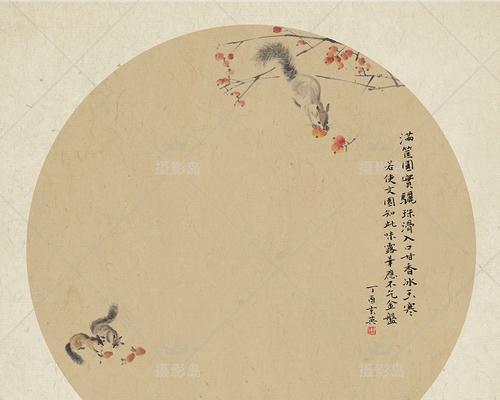 满筐圆實驪珠滑入口甘香冰玉寒
若使文園知此味露華應不乞金盤
丁酉玄英
摄影岛
摄影岛
摄影岛
摄影岛